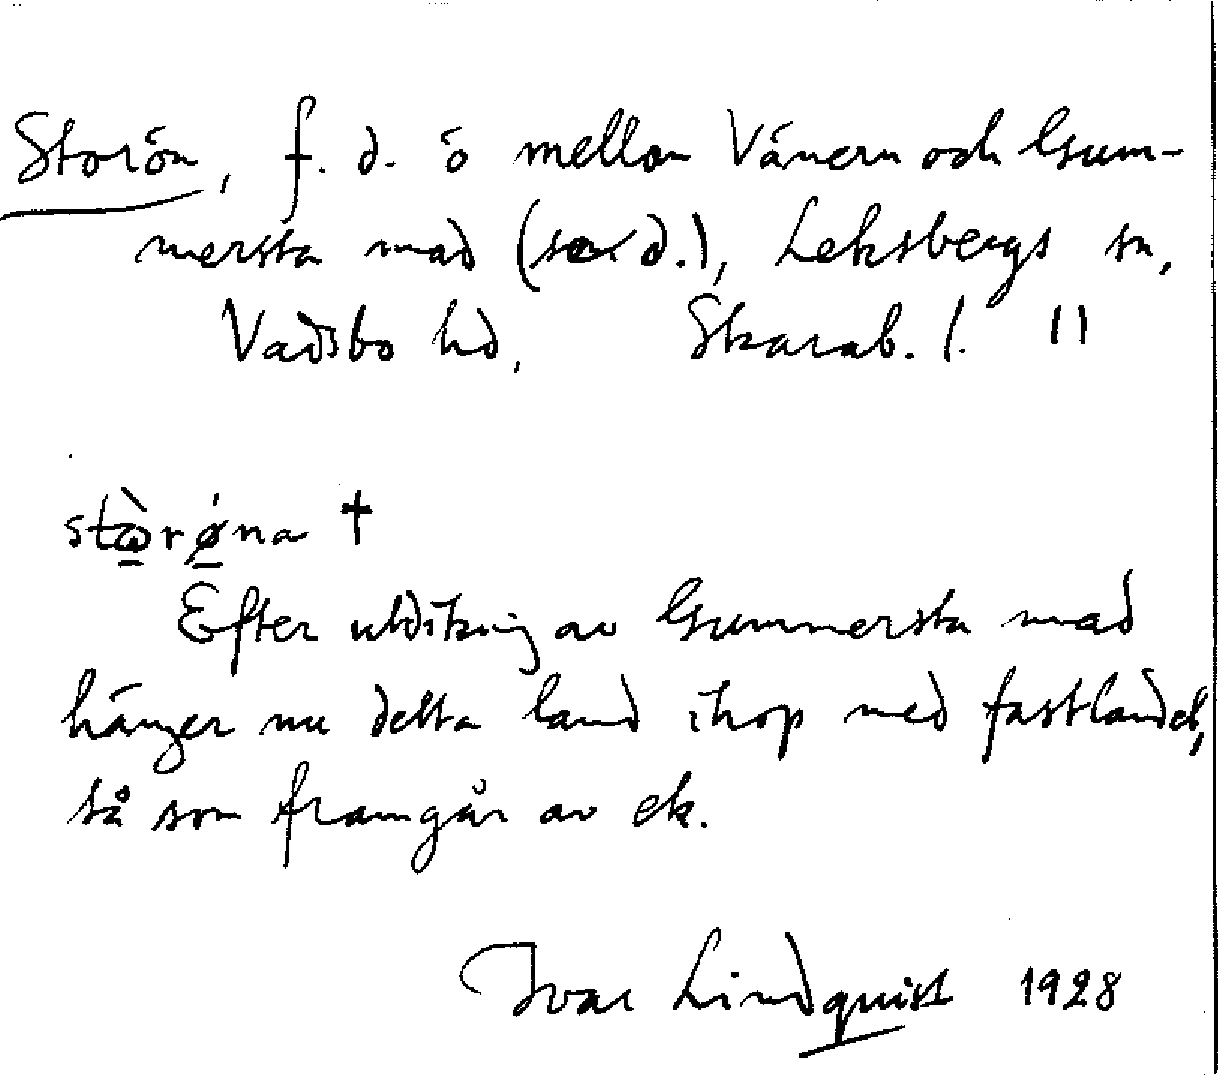 Storön, f. d. ö mellan Vänern och Gum-
mersta mad (se d.), Leksbergs sn,
Vadsbo hd, Skarab. l. 11
stὼrǿna †
Efter utdikning av Gummersta mad
hänger nu detta land ihop med fastlandet,
så som framgår av ek.
Ivar Lindquist 1928